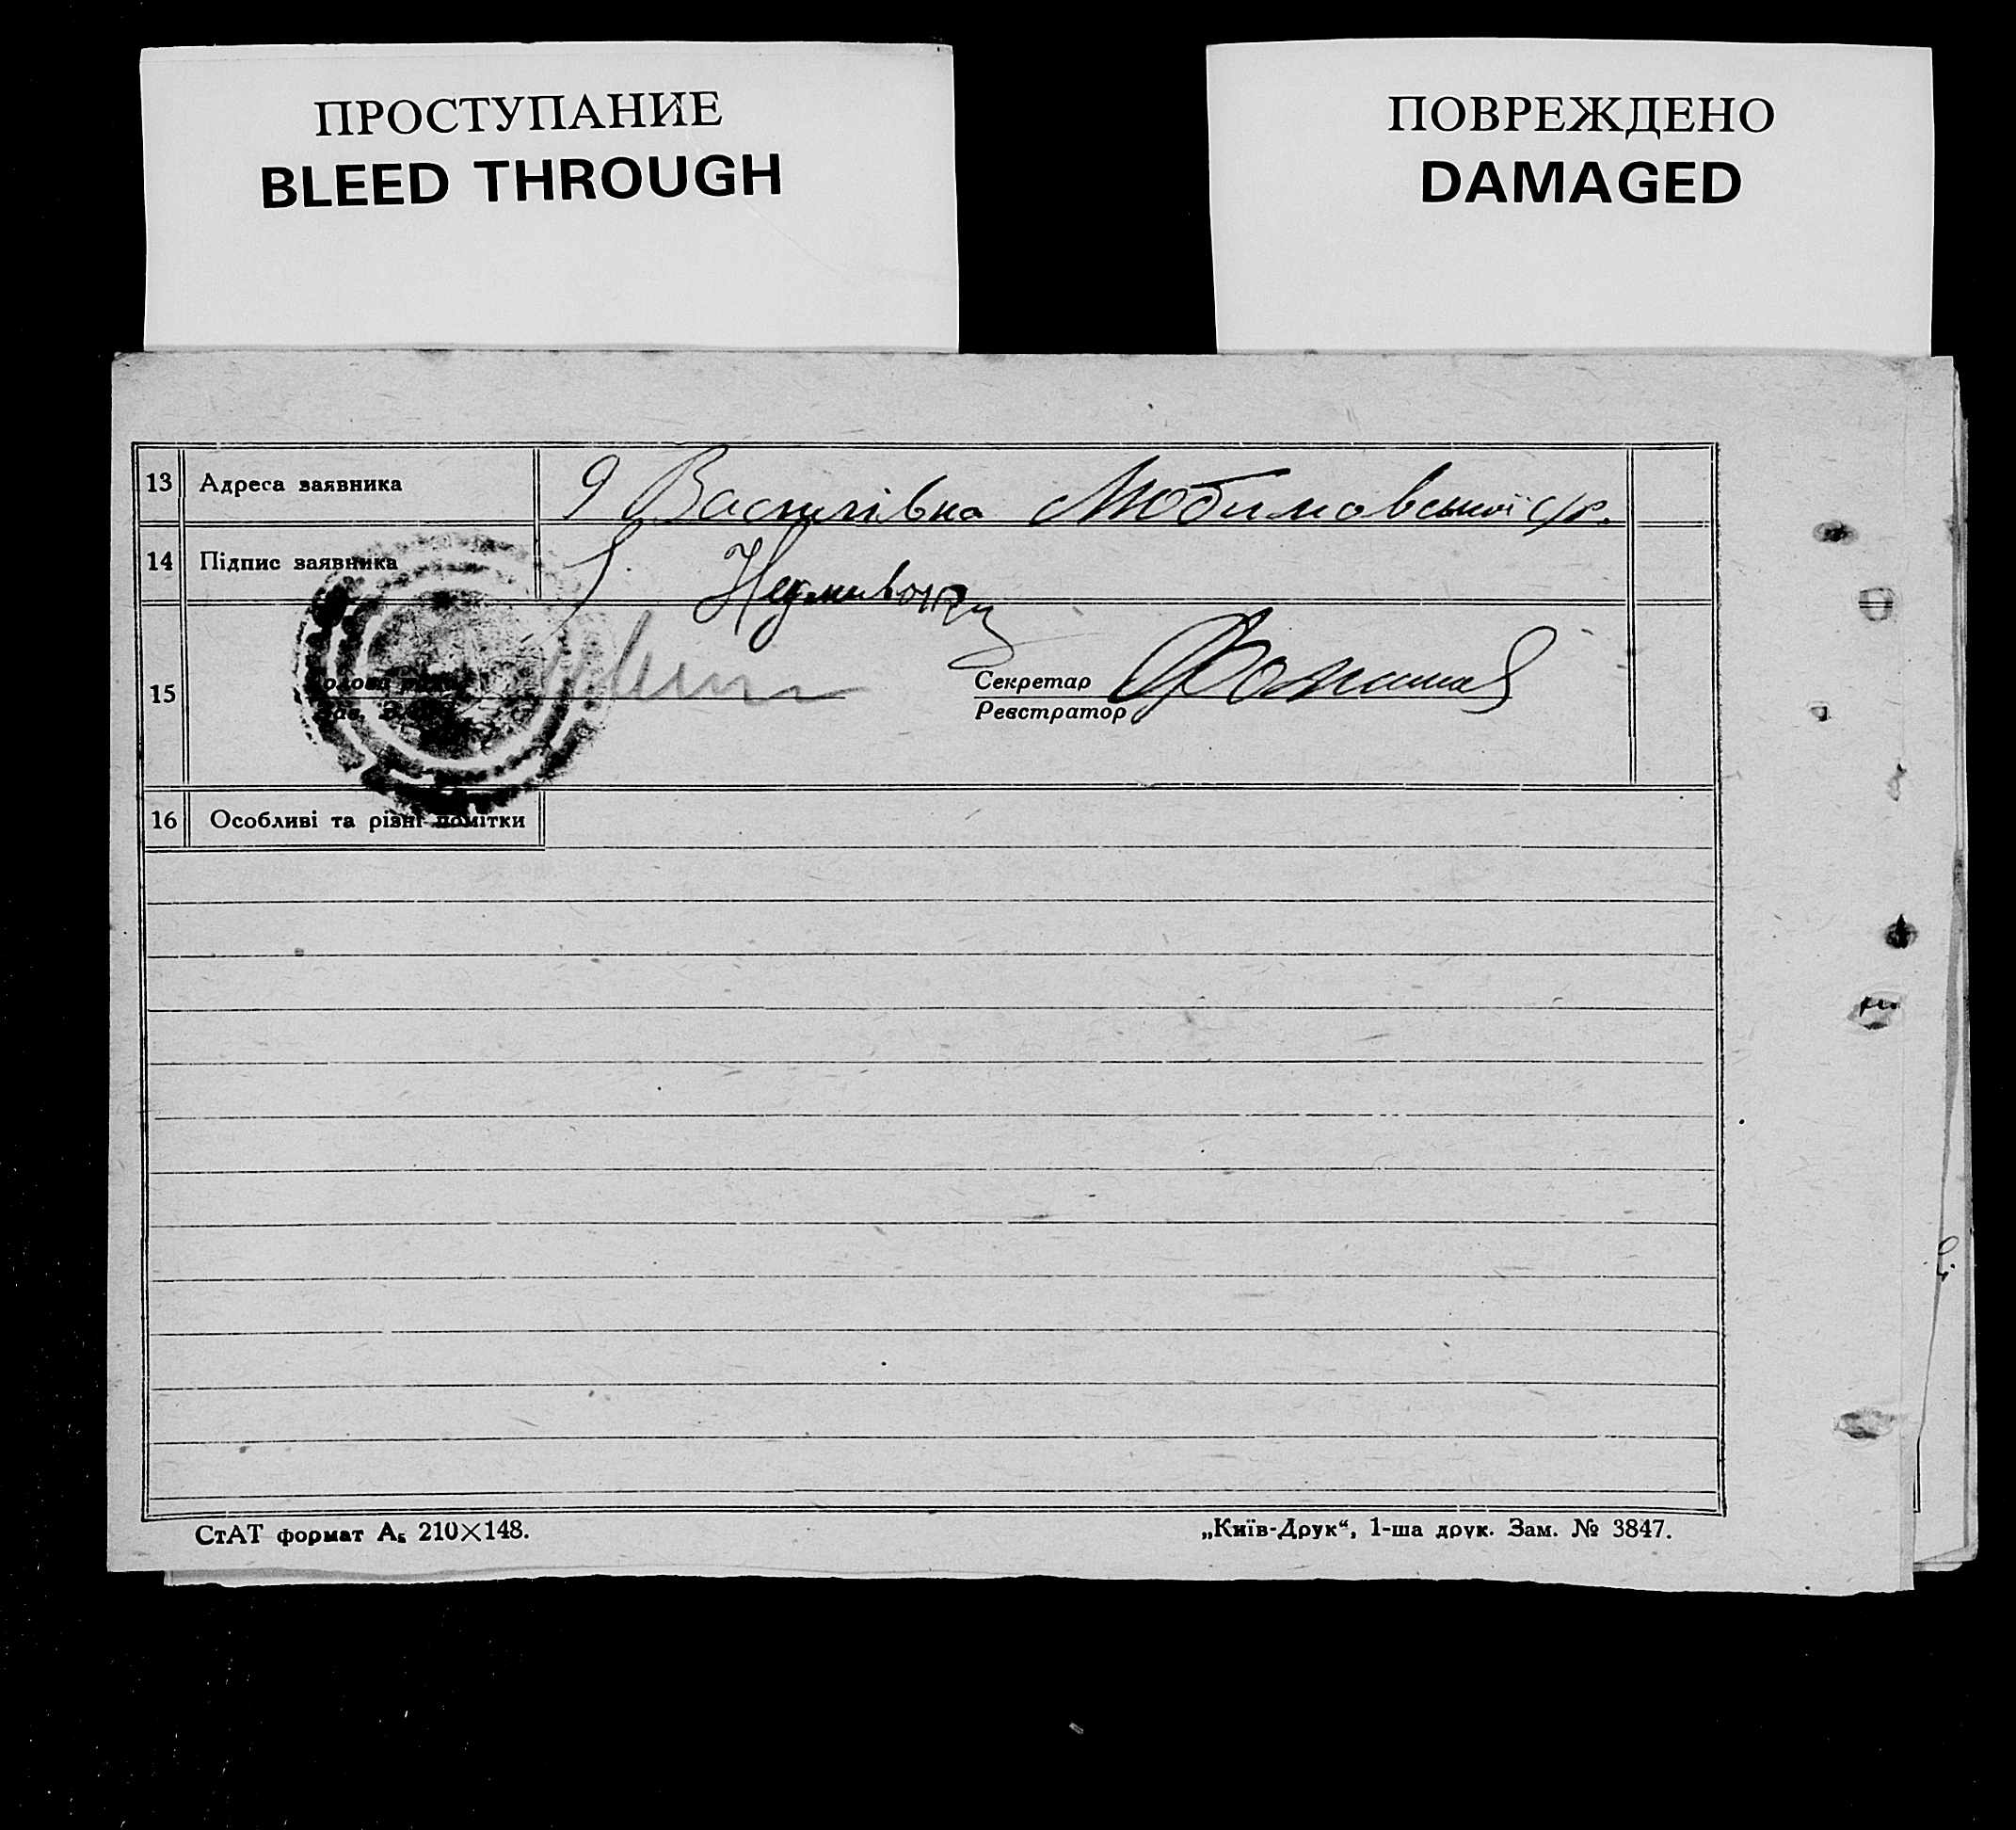 ПРОСТУПАНИЕ
BLEED THROUGH
ПОВРЕЖДЕНО
DAMAGED
13 Адреса заявника Василівка Любимовської с/р.
14 Підпис заявника
15
Секретар
Реєстратор
16 Особливі та різні помітки
СтАТ формат А₅ 210×148.
„Київ-Друк“, 1-ша друк. Зам. № 3847.